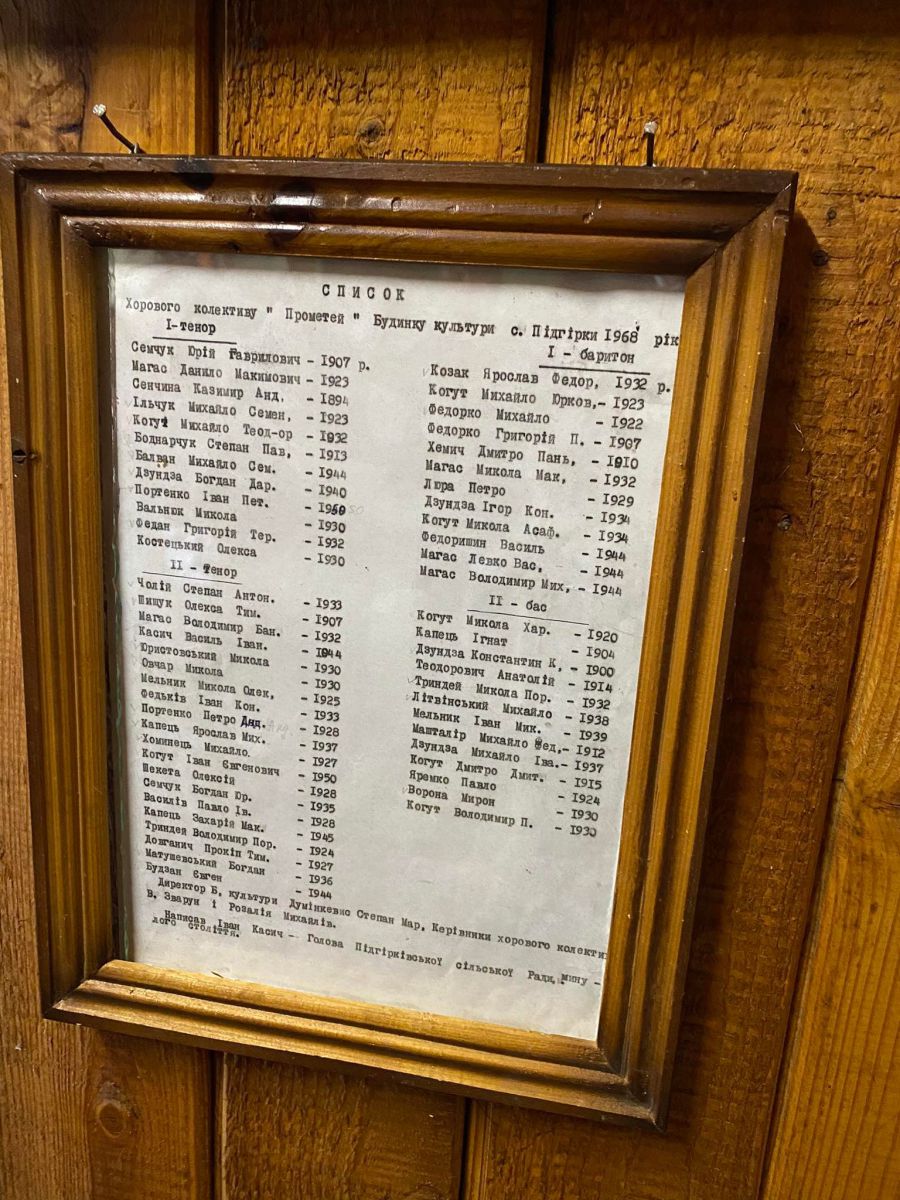 СПИСОК
Хорового колективу " Прометей " Будинку культури с. Підгірки 1968 рік
І-тенор
Семчук Юрій Гаврилович - 1907 р.
Магас Данило Макимович - 1923
Сенчина Казимир Анд, - 1894
Ільчук Михайло Семен, - 1923
Когут Михайло Теод-ор - 1932
Боднарчук Степан Пав, - 1913
Балван Михайло Сем. - 1944
Дзундза Богдан Дар. - 1940
Портенко Іван Пет.
Вальнюк Микола - 1930
Федан Григорій Тер. - 1932
Костецький Олекса - 1930
ІІ - Тенор
Чолій Степан Антон. - 1933
Шищук Олекса Тим. - 1907
Магас Володимир Бан. - 1932
Касич Василь Іван. - 1944
Юристовський Микола - 1930
Овчар Микола - 1930
Мельник Микола Олек, - 1925
Федьків Іван Кон. - 1933
Портенко Петро Анд. - 1928
Капець Ярослав Мих. - 1937
Хоминець Михайло. - 1927
Когут Іван Євгенович - 1950
Шекета Олексій - 1928
Семчук Богдан Юр. - 1935
Василів Павло Ів. - 1928
Капець Захарій Мак. - 1945
Триндей Володимир Пор. - 1924
Довганич Прокіп Тим. - 1927
Матушевський Богдан - 1936
Будзан Євген - 1944
І - баритон
Козак Ярослав Федор, 1932 р.
Когут Михайло Юрков,- 1923
Федорко Михайло - 1922
Федорко Григорій П. - 1907
Хемич Дмитро Пань, - 1910
Магас Микола Мак, - 1932
Люра Петро - 1929
Дзундза Ігор Кон. - 1934
Когут Микола Асаф. - 1934
Федоришин Василь - 1944
Магас Левко Вас, - 1944
Магас Володимир Мих, - 1944
ІІ - бас
Когут Микола Хар. - 1920
Капець Ігнат - 1904
Дзундза Константин К, - 1900
Теодорович Анатолій - 1914
Триндей Микола Пор. - 1932
Літвінський Михайло - 1938
Мельник Іван Мик. - 1939
Машталір Михайло Фед.- 1912
Дзундза Михайло Іва.- 1937
Когут Дмитро Дмит. - 1915
Яремко Павло - 1924
Ворона Мирон - 1930
Когут Володимир П. - 1930
Директор Б. культури Думінкевис Степан Мар, Керівники хорового колекти
В. Зварун і Розалія Михайлів.
Написав Іван Касич - Голова Підгірківської сільської Ради, мину -
лого століття.